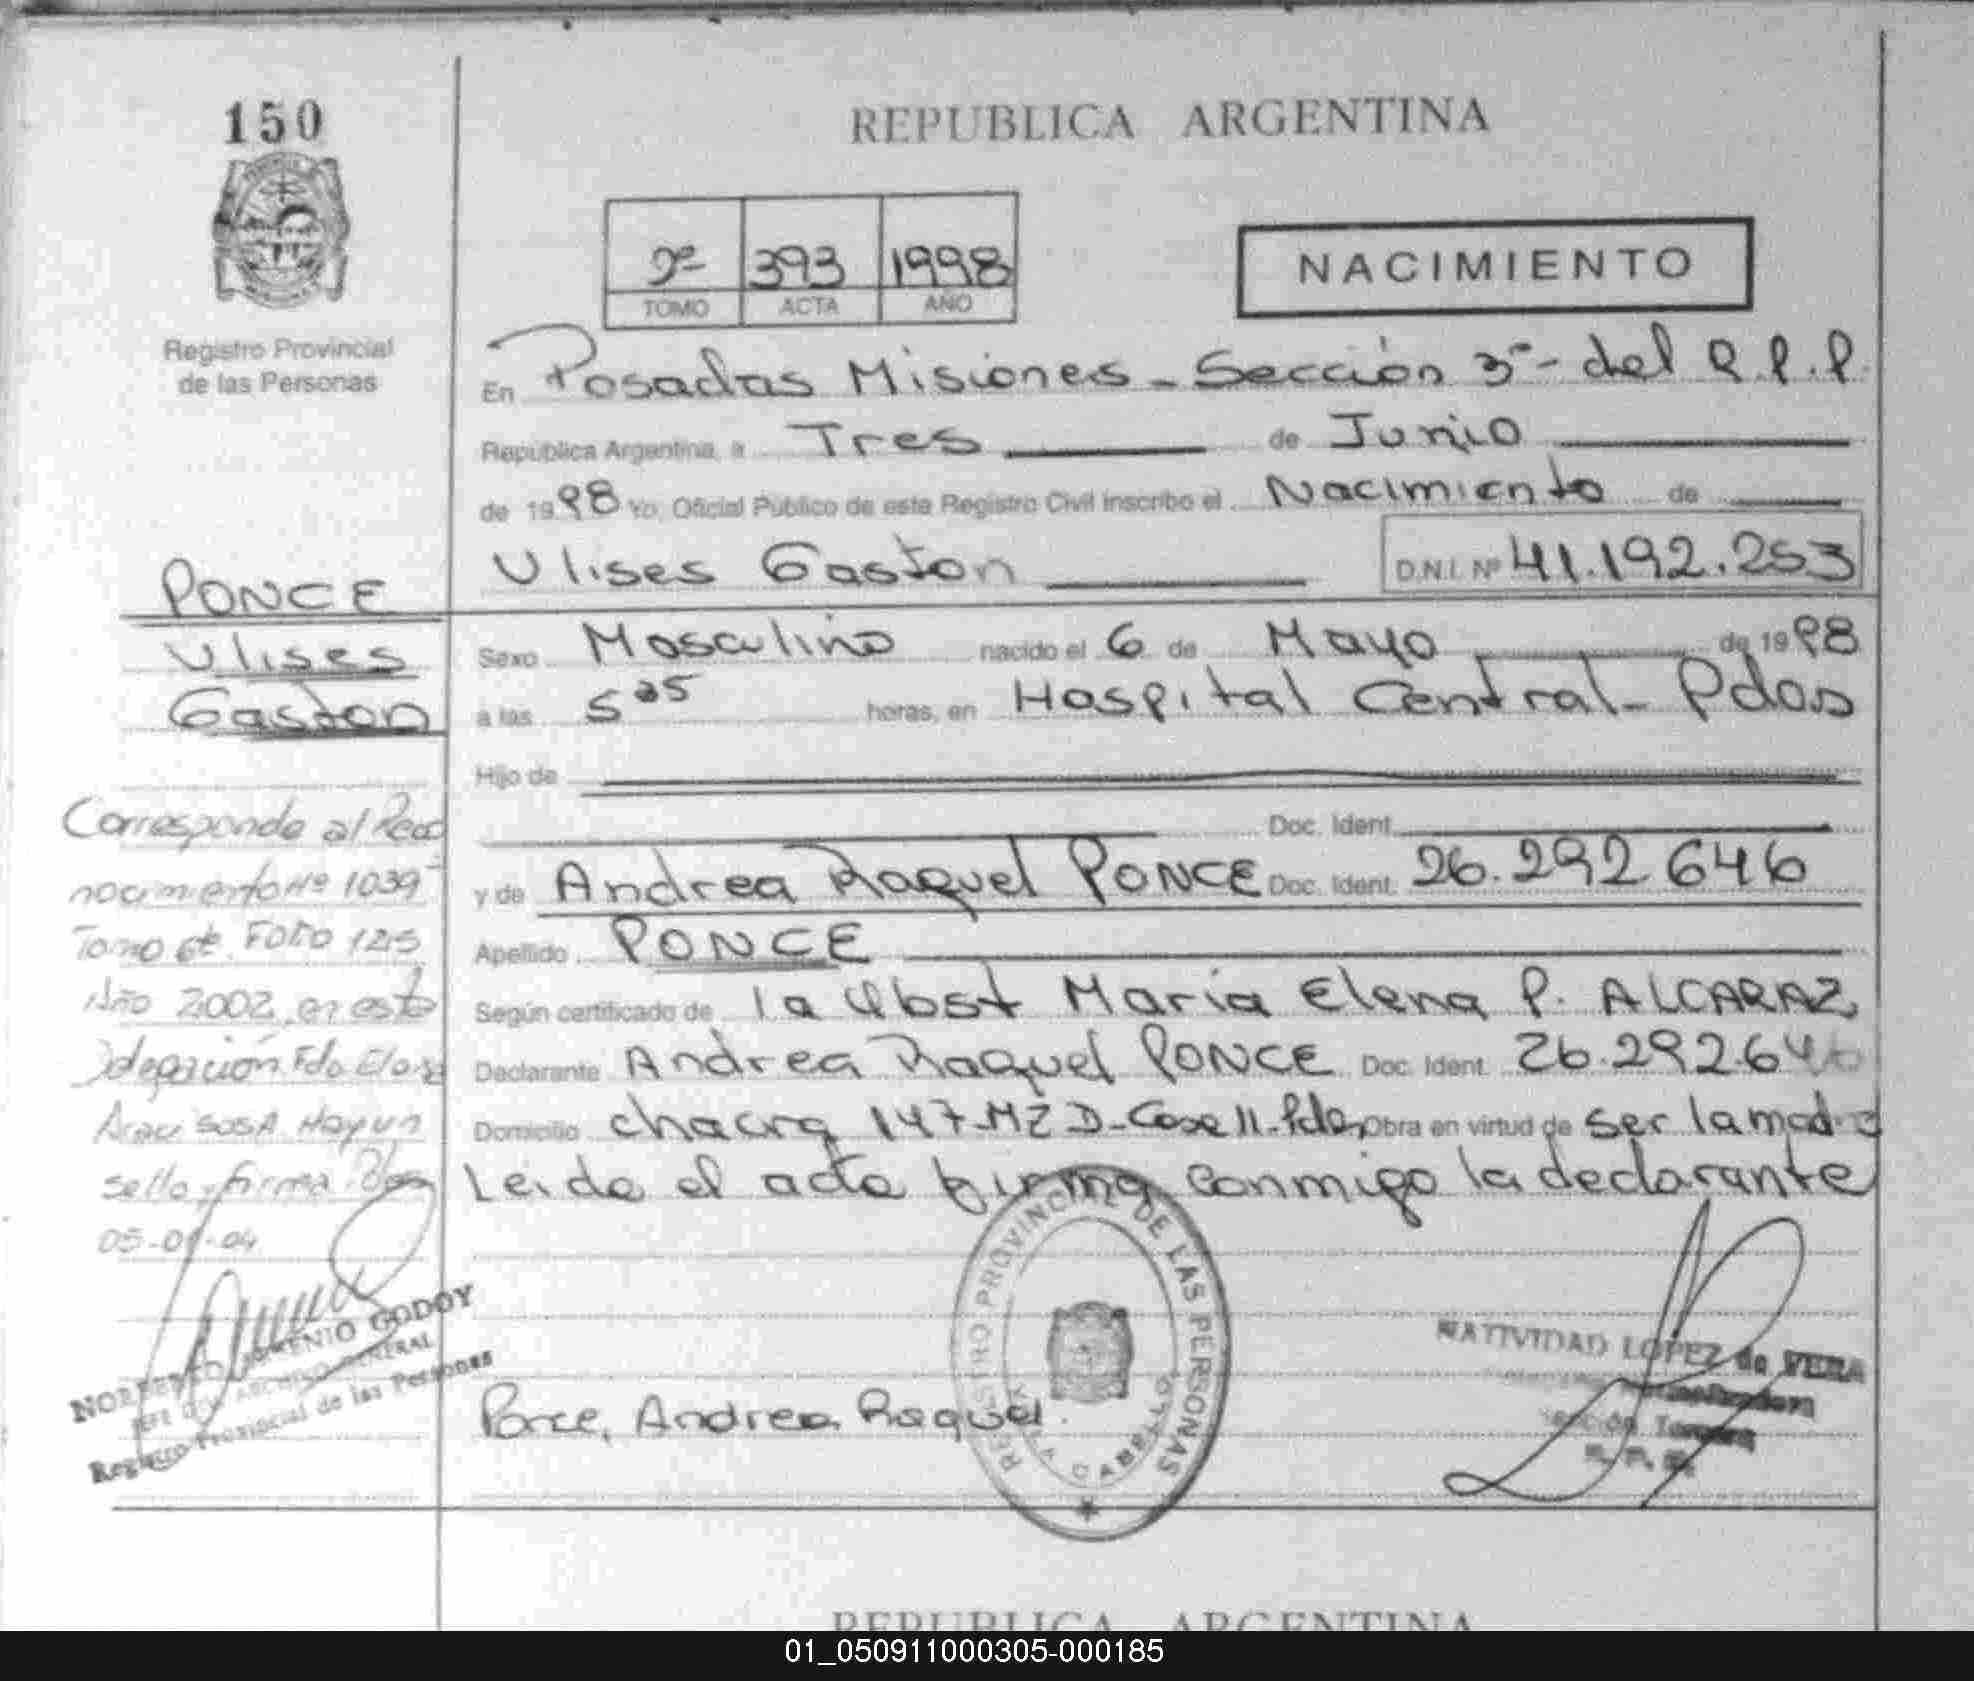 150
REPUBLICA ARGENTINA
2º 393 1998
TOMO ACTA AÑO
NACIMIENTO
Registro Provincial
de las Personas
En Posadas Misiones - Sección 3ª - del R.P.P.
República Argentina, a Tres de Junio
de 1998 Yo, Oficial Público de este Registro Civil inscribo el Nacimiento de
Ulises Gaston D.N.I. Nº 41.192.253
PONCE
Ulises
Gaston
Sexo Masculino nacido el 6 de Mayo de 1998
a las 5 horas, en Hospital Central - Pdas
Hijo de
Doc. Ident.
y de Andrea Raquel PONCE Doc. Ident. 26.292.646
Apellido PONCE
Según certificado de la Obst Maria Elena P. ALCARAZ
Declarante Andrea Raquel PONCE Doc. Ident. 26.292.646
Domicilio chacra 147-MZ D-Case 11-Pdas Obra en virtud de ser la madre
Leida el acta firma conmigo la declarante
Corresponde al Reco
nocimiento Nº 1039
Tomo 6º Folio 125
Año 2002 en esta
Delegación Fdo
sello y firma
05-01-04
NORBERTO GODOY
ARCHIVO GENERAL
Registro Provincial de las Personas
Ponce, Andrea Raquel
REGISTRO PROVINCIAL DE LAS PERSONAS
VILLA CABELLO
NATIVIDAD LOPEZ de VERA
Sección Tercera
R. P. P.
REPUBLICA ARGENTINA
01_050911000305-000185